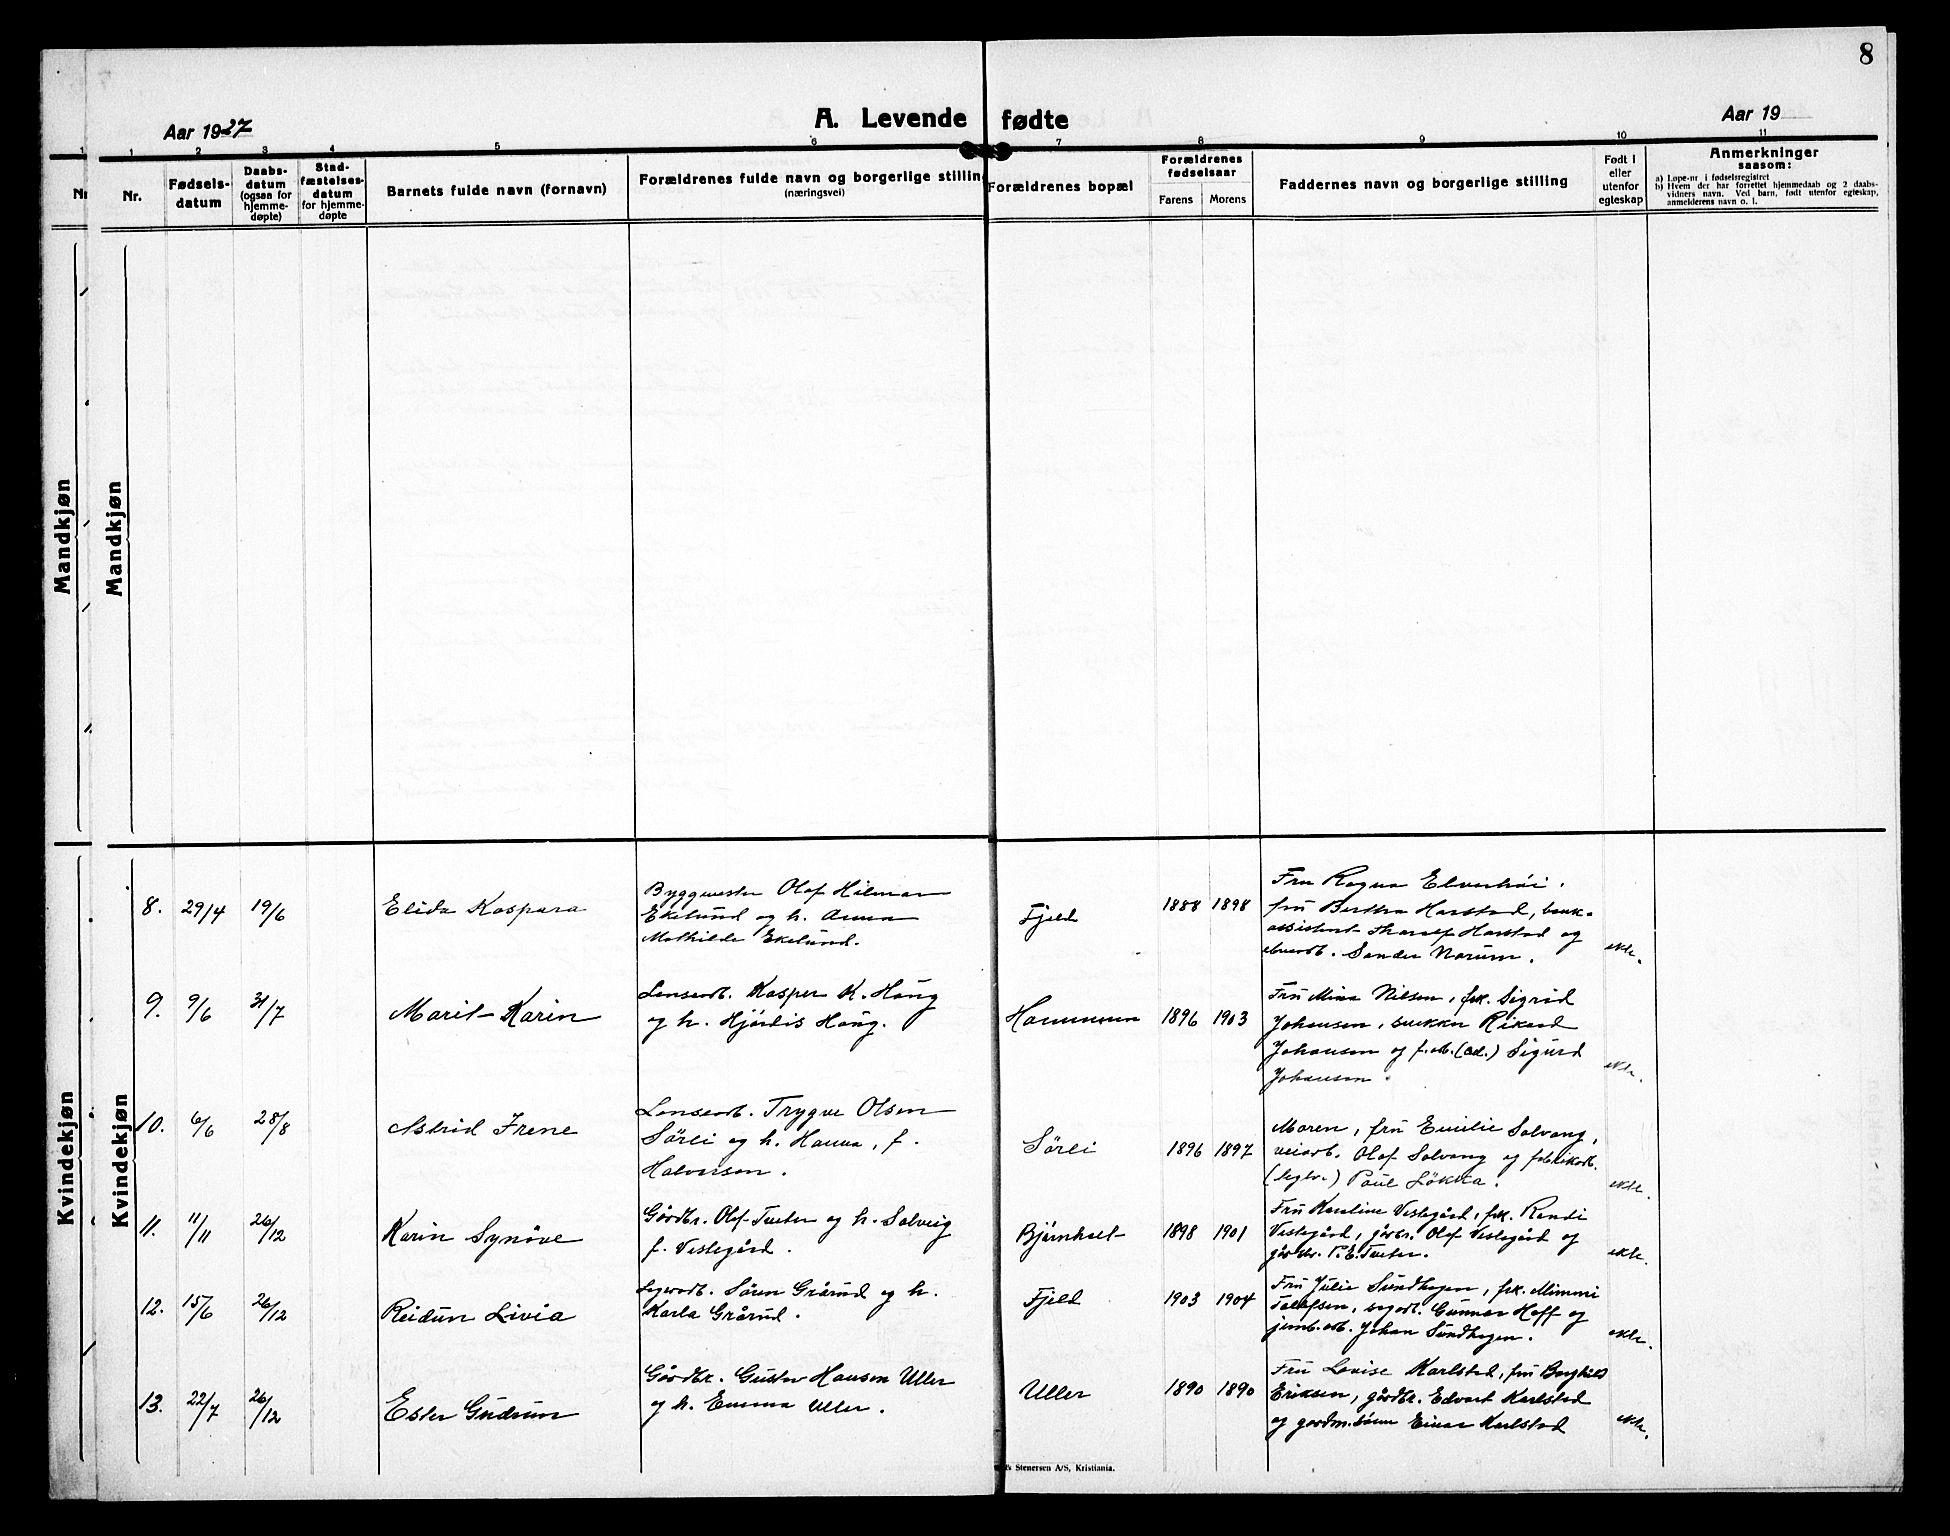 8
Aar 1927
A. Levende fødte
Aar 19
1 1 2 3 4 5 6 7 8 9 10 11
Nr
Nr.
Fødsels-
datum
Daabs-
datum
(ogsaa for
hjemme-
døpte)
Stad-
fæstelses-
datum
for hjemme-
døpte
Barnets fulde navn (fornavn)
Forældrenes fulde navn og borgerlige stilling
(næringsvei)
Forældrenes bopæl
Forældrenes
fødselsaar
Farens Morens
Faddernes navn og borgerlige stilling
Født i
eller
utenfor
egteskap
Anmerkninger
saasom:
a) Løpe-nr i fødselsregistret
b) Hvem der har forrettet hjemmedaab og 2 daabs-
vidners navn. Ved barn, født utenfor egteskap,
anmelderens navn o. l.
Mandkjøn
Mandkjøn
Kvindekjøn
Kvindekjøn
8. 29/4 19/6
Elida Kaspara
Byggmester Olaf Hilmar
Ekelund og h. Anna
Mathilde Ekelund.
Fjeld
1888 1898
Fru Ragna Elverhöi.
fru Bertha Harstad, bank-
assistent Thoralf Harstad og
Sander Norum.
ekte.
9. 9/6 31/7
Marit Karin
Lensearb. Kasper K. Haug
og h. Hjördis Haug.
Hammeren
1896 1903
Fru Mina Nilsen, frk. Sigrid
Johansen, snekker Rikard
Johansen og f.arb. (cel.) Sigurd
Johansen.
ekte.
10. 6/6 28/8
Astrid Irene
Lensearb. Trygve Olsen
Sörli og h. Hanna, f.
Halvorsen.
Sörli
1896 1897
Moren, fru Emilie Solvang,
veiarb. Olaf Solvang og fabrikarb.
Paul Lökka.
ekte.
11. 11/11 26/12
Karin Synöve
Gårdbr. Olaf Tveter og h. Solveig
f. Vestegård.
Bjørnholt
1898 1901
Fru Karoline Vestegård, frk. Randi
Vestegård, gårbr. Olaf Vestegård og
gårdbr. P. E. Tveter.
ekte.
12. 15/6 26/12
Reidun Livia
Sagarb. Sören Grårud og h.
Karla Grårud.
Fjeld
1903 1904
Fru Julie Sundhagen, frk. Mimmi
Tollefsen, Gunnar Hoff og
jernb.arb. Johan Sundhagen.
ekte.
13. 22/7 26/12
Ester Gudrun
Gårdbr. Gustav Hansen Uller
og h. Emma Uller.
Uller
1890 1890
Fru Lovise Karlstad, fru Borghild
Eriksen, gårdbr. Edvart Karlstad
og gardm.sönn Einar Karlstad
ekte.
Stenersen A/S, Kristiania.